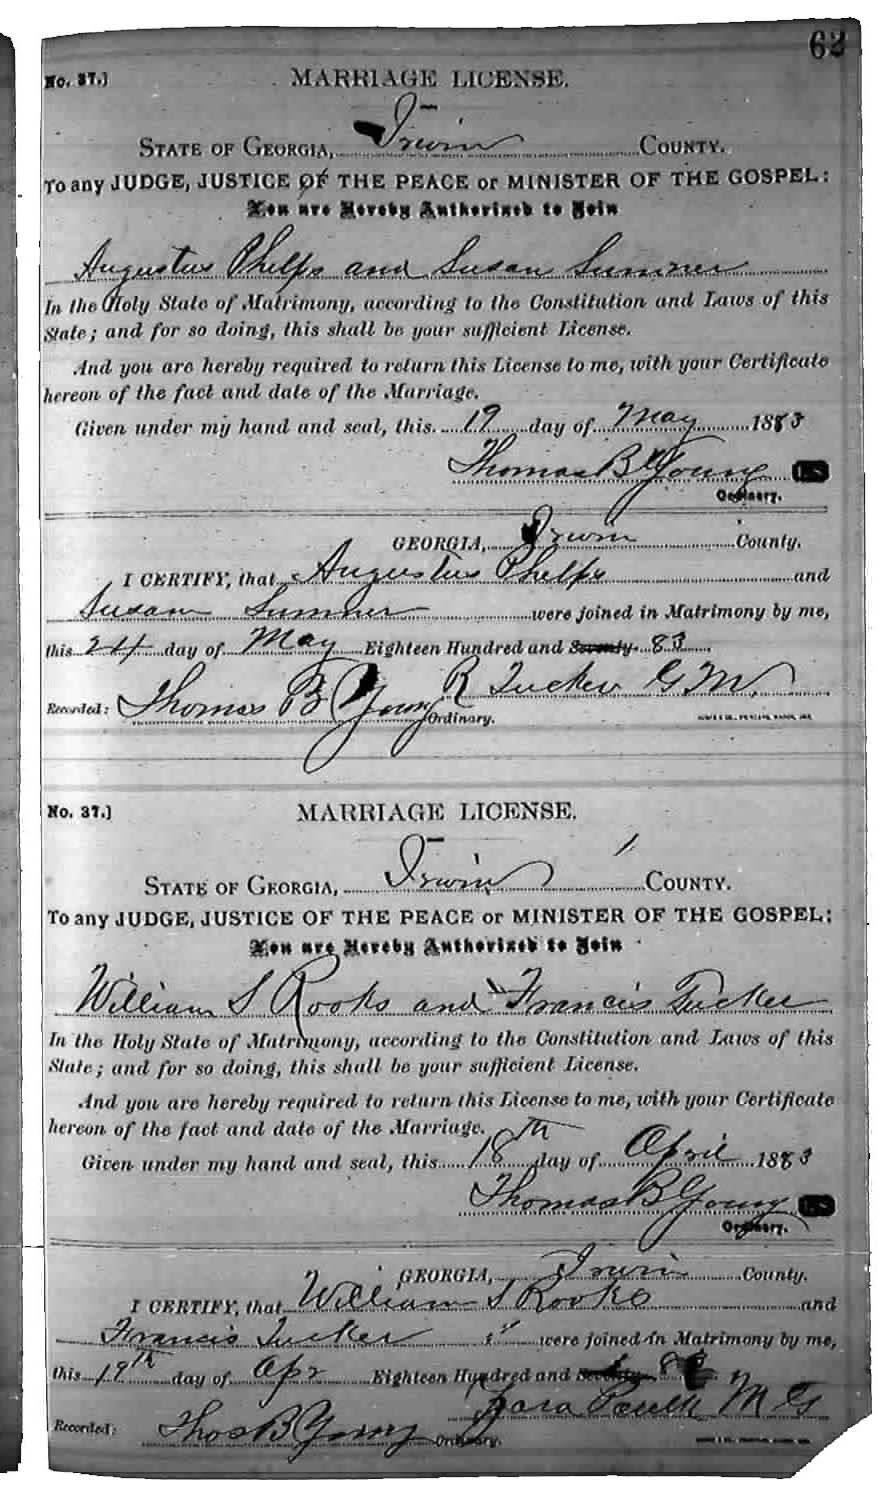 62
No. 37.] MARRIAGE LICENSE.
STATE OF GEORGIA, Irwin COUNTY.
To any JUDGE, JUSTICE OF THE PEACE or MINISTER OF THE GOSPEL:
You are Hereby Authorized to Join
Augustus Phelps and Susan Sumner
In the Holy State of Matrimony, according to the Constitution and Laws of this
State; and for so doing, this shall be your sufficient License.
And you are hereby required to return this License to me, with your Certificate
hereon of the fact and date of the Marriage.
Given under my hand and seal, this 19 day of May 1883
Thomas B Young LS
Ordinary.
GEORGIA, Irwin County.
I CERTIFY, that Augustus Phelps and
Susan Sumner were joined in Matrimony by me,
this 24 day of May Eighteen Hundred and Seventy 83
R Tucker G M
Recorded: Thomas B Young Ordinary.
No. 37.] MARRIAGE LICENSE.
STATE OF GEORGIA, Irwin COUNTY.
To any JUDGE, JUSTICE OF THE PEACE or MINISTER OF THE GOSPEL:
You are Hereby Authorized to Join
William S Rooks and Francis Tucker
In the Holy State of Matrimony, according to the Constitution and Laws of this
State; and for so doing, this shall be your sufficient License.
And you are hereby required to return this License to me, with your Certificate
hereon of the fact and date of the Marriage.
Given under my hand and seal, this 18th day of April 1883
Thomas B Young LS
Ordinary.
GEORGIA, Irwin County.
I CERTIFY, that William S Rooks and
Francis Tucker were joined in Matrimony by me,
this 19th day of Apr Eighteen Hundred and Seventy 83
Paulk M G
Recorded: Thos B Young Ordinary.